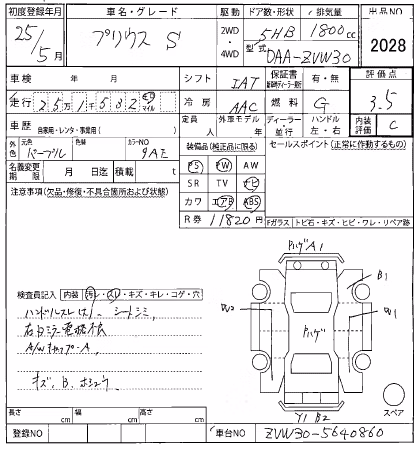 初度登録年月 車名・グレード 駆動 ドア数・形状 排気量 出品NO
25年5月 プリウス S 2WD・4WD 5HB 1800cc 2028
型式 DAA-ZVW30
車検 年 月 シフト IAT 保証書 有・無 評価点
走行 25万1千582 キロ マイル 冷房 AAC 燃料 G 3.5
車歴 自家用・レンタ・事業用( ) 定員 人 外車モデル 年 ディーラー 並行 ハンドル 左・右 内装評価 C
外色 元色 パープル 色替 カラーNO 9AE 装備品(純正品に限る) セールスポイント(正常に動作するもの)
名義変更期限 月 日迄 積載 t PS PW AW
注意事項(欠品・修復・不具合箇所および状態) SR TV ナビ
カワ エアB ABS
R券 11820円 Fガラス トビ石・キズ・ヒビ・ワレ・リペア跡
検査員記入 内装 汚レ・スレ・キズ・キレ・コゲ・穴
ハンドルスレ シートシミ
A/Wキャップ-A
キズ、B、
ハゲA1
B1
W2
ハゲ
W1
Y1 B2
スペア
長さ cm 幅 cm 高さ cm
登録NO 車台NO ZVW30-5640860